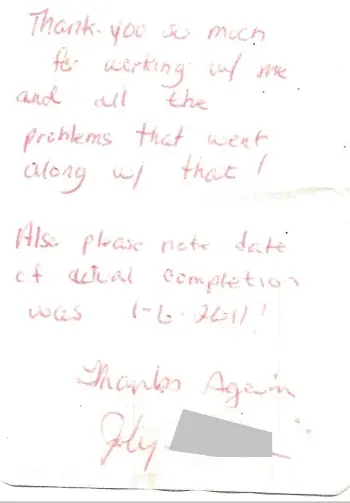 Thank-you so much
for working w/ me
and all the
problems that went
along w/ that!
Also please note date
of actual completion
was 1-6-2011!
Thanks Again